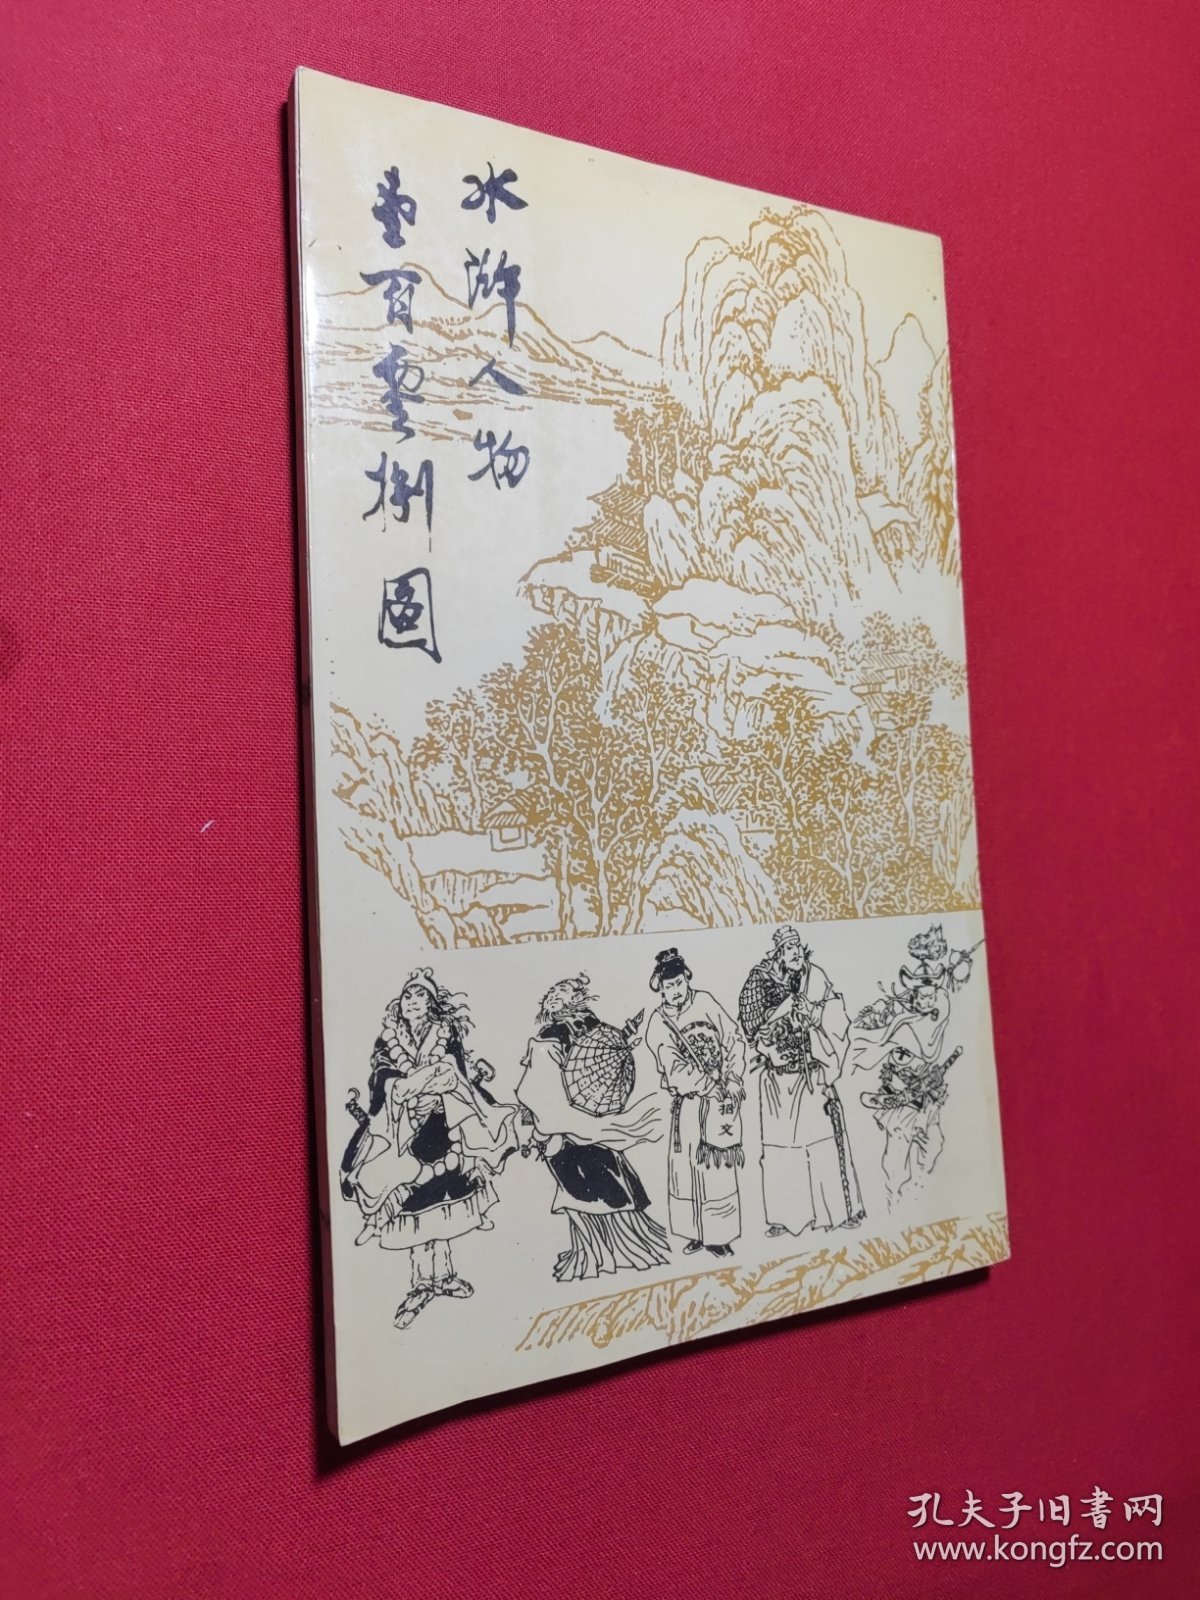 水滸人物
壹百零捌圖
招文
孔夫子旧书网
www.kongfz.com